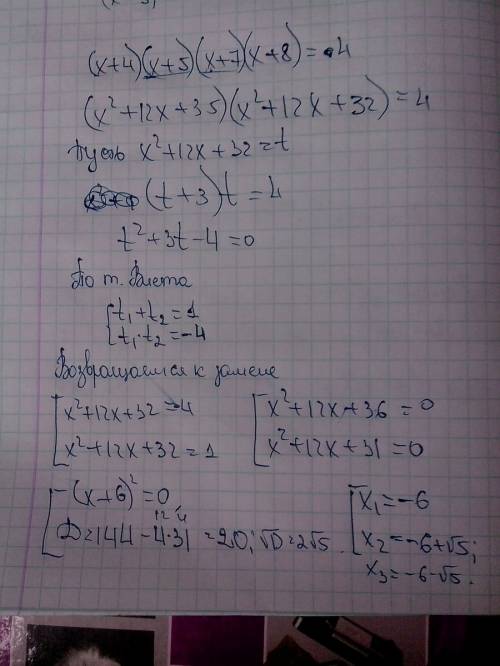 (x+4)(x+5)(x+7)(x+8)=4
(x²+12x+35)(x²+12x+32)=4
Пусть x²+12x+32=t
(t+3)t=4
t²+3t-4=0
По т. Виета
{t₁+t₂=1
{t₁·t₂=-4
Возвращаемся к замене
[x²+12x+32=-4 [x²+12x+36=0
[x²+12x+32=1 [x²+12x+31=0
[(x+6)²=0 [x₁=-6
[D=144-4·31=20; √D=2√5. [x₂=-6+√5;
x₃=-6-√5.